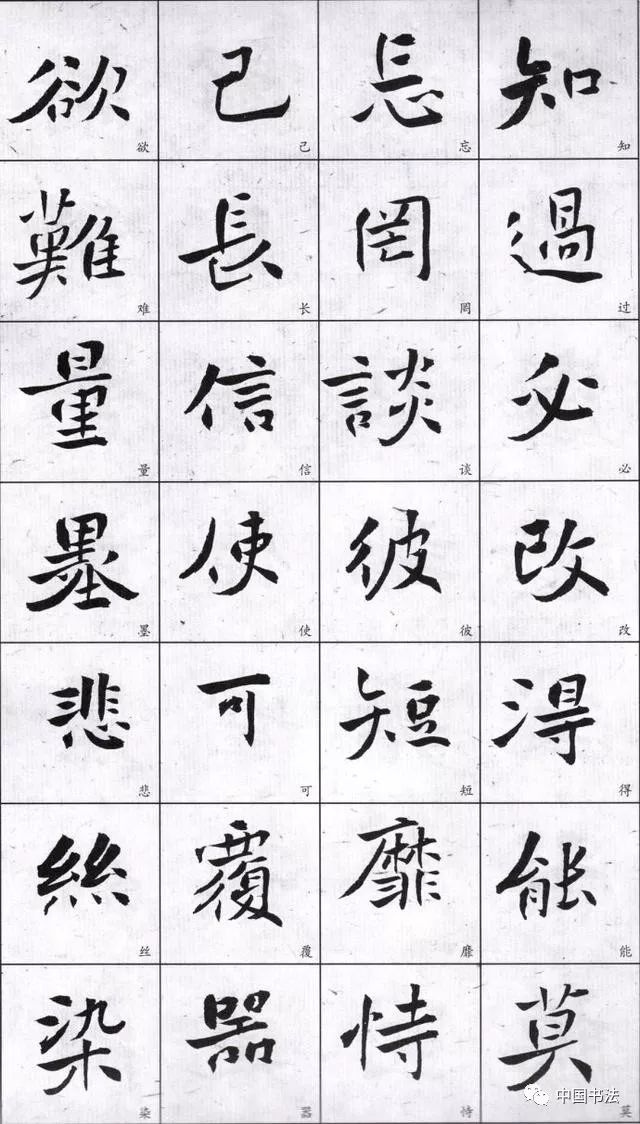 知過必改得能莫
知过必改得能莫
忘罔談彼短靡恃
忘罔谈彼短靡恃
己長信使可覆器
己长信使可覆器
欲難量墨悲絲染
欲难量墨悲丝染
中国书法